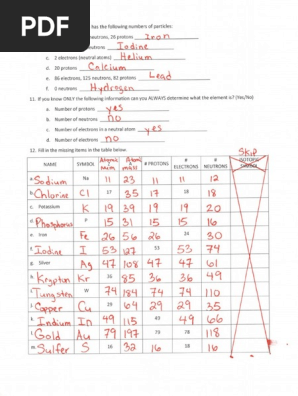 PDF
has the following numbers of particles:
neutrons, 26 protons Iron
neutrons Iodine
c. 2 electrons (neutral atoms) Helium
d. 20 protons Calcium
e. 86 electrons, 125 neutrons, 82 protons Lead
f. 0 neutrons Hydrogen
11. If you know ONLY the following information can you ALWAYS determine what the element is? (Yes/No)
a. Number of protons yes
b. Number of neutrons no
c. Number of electrons in a neutral atom yes
d. Number of electrons no
12. Fill in the missing items in the table below.
Skip
NAME SYMBOL Atomic num Atomic mass # PROTONS # ELECTRONS # NEUTRONS ISOTOPIC SYMBOL
a. Sodium Na 11 23 11 11 12
b. Chlorine Cl 17 35 17 18 18
c. Potassium K 19 39 19 19 20
d. Phosphorus P 15 31 15 15 16
e. Iron Fe 26 56 26 24 30
f. Iodine I 53 127 53 53 74
g. Silver Ag 47 108 47 47 61
h. Krypton Kr 36 85 36 36 49
Tungsten W 74 184 74 74 110
j. Copper Cu 29 64 29 29 35
k. Indium In 49 115 49 49 66
l. Gold Au 79 197 79 78 118
m. Sulfer S 16 32 16 18 16